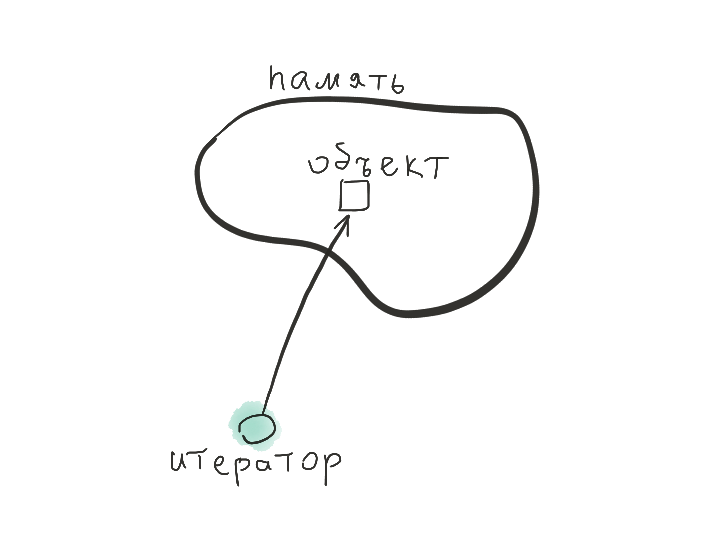 память
объект
итератор